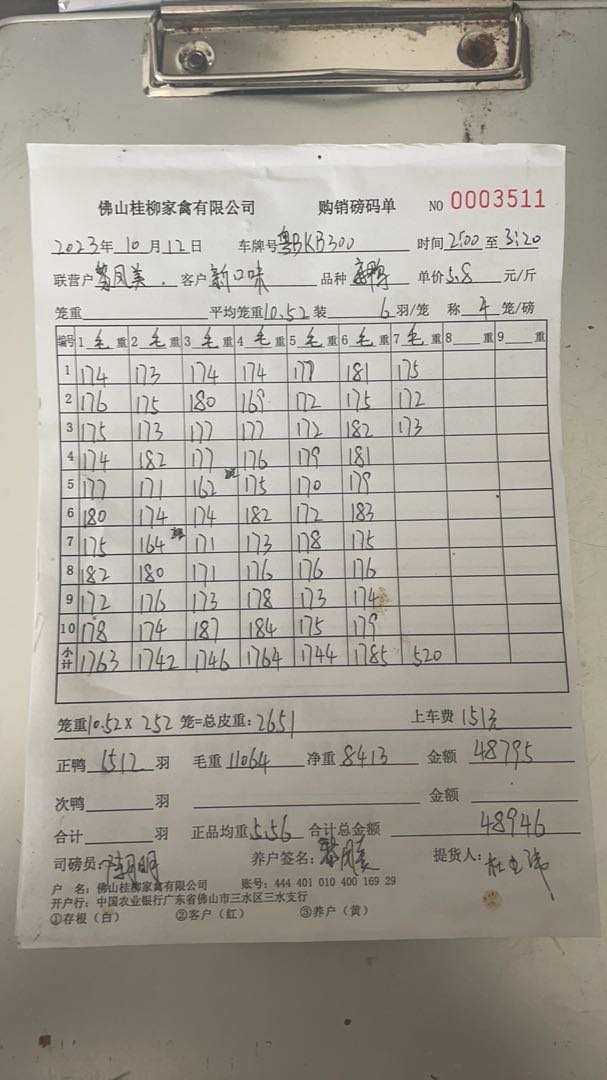 佛山桂柳家禽有限公司 购销磅码单 NO 0003511
2023年10月12日 车牌号粤BKB300 时间2:00至3:20
联营户黎凤美 客户新口味 品种 单价5.8元/斤
笼重 平均笼重10.52装6羽/笼 称4笼/磅
编号 1毛重 2毛重 3毛重 4毛重 5毛重 6毛重 7毛重 8重 9重
1 174 173 174 174 177 181 175
2 176 175 180 169 172 175 172
3 175 173 177 177 172 182 173
4 174 182 177 176 179 181
5 177 171 162 175 170 179
6 180 174 174 182 172 183
7 175 164 171 173 178 175
8 182 180 171 176 176 176
9 172 176 173 178 173 174
10 178 174 187 184 175 179
小计 1763 1742 1746 1764 1744 1785 520
笼重10.52×252笼=总皮重:2651 上车费151元
正鸭1512羽 毛重11064 净重8413 金额48795
次鸭羽 金额
合计羽 正品均重5.56 合计总金额48946
司磅员: 养户签名:黎凤美 提货人:
户 名:佛山桂柳家禽有限公司 账号:444 401 010 400 169 29
开户行:中国农业银行广东省佛山市三水区三水支行
①存根(白) ②客户(红) ③养户(黄)